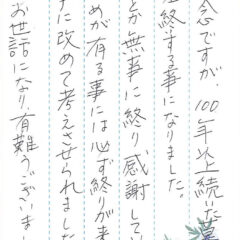 念ですが、100年以上続いた
終する事になりました。
とか無事に終り感謝して
めが有る事には必ず終りが来
に改めて考えさせられました
お世話になり、有難うございまし